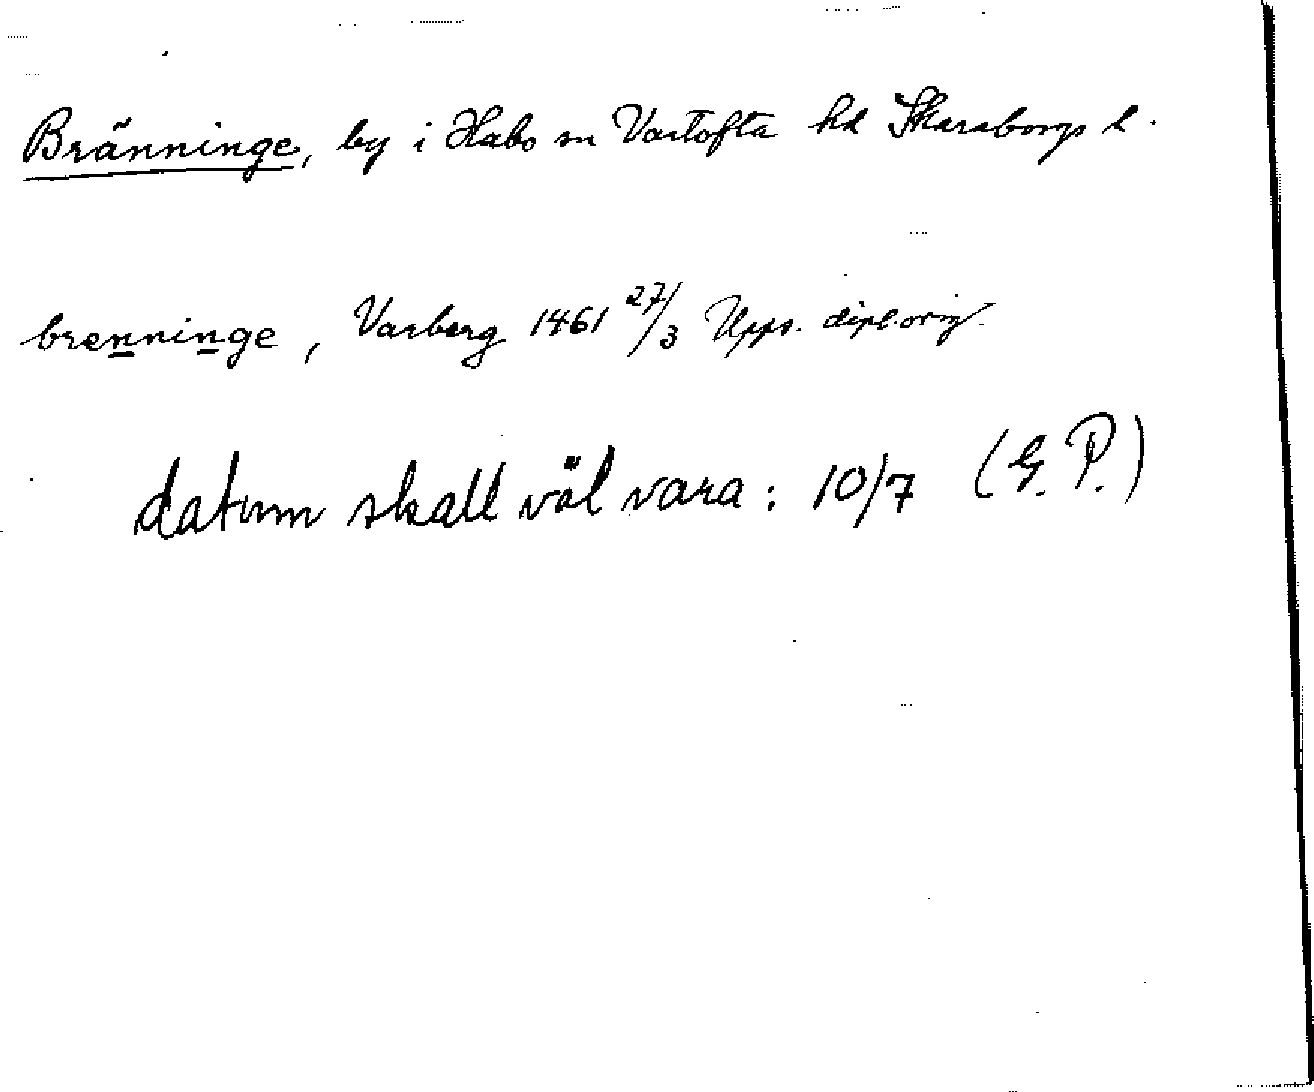 Bränninge, by i Habo sn Vartofta hd Skaraborgs l.
brenninge, Varberg 1461 27/3 Upps. dipl. orig.
datum skall väl vara: 10/7 (G. P.)